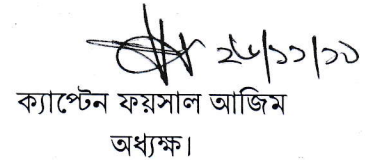 ২৬/১১/১১
ক্যাপ্টেন ফয়সাল আজিম
অধ্যক্ষ।